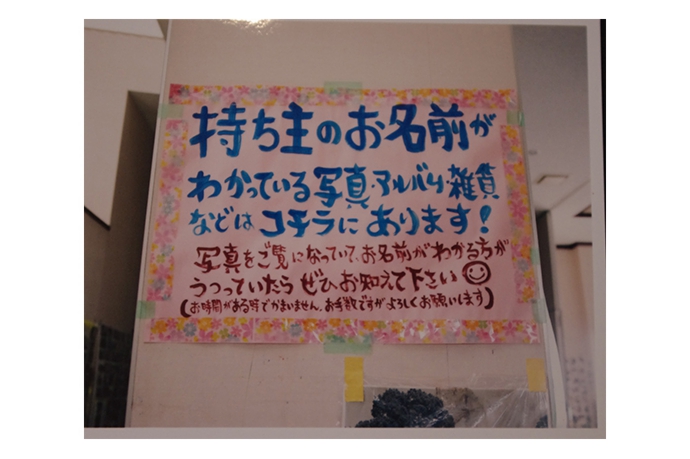 持ち主のお名前が
わかっている写真・アルバム・雑貨
などは コチラに あります!
写真をご覧になっていて、お名前がわかる方が
うつっていたら ぜひお知えて下さい
(お時間がある時でかまいません。お手数ですがよろしくお願いします)